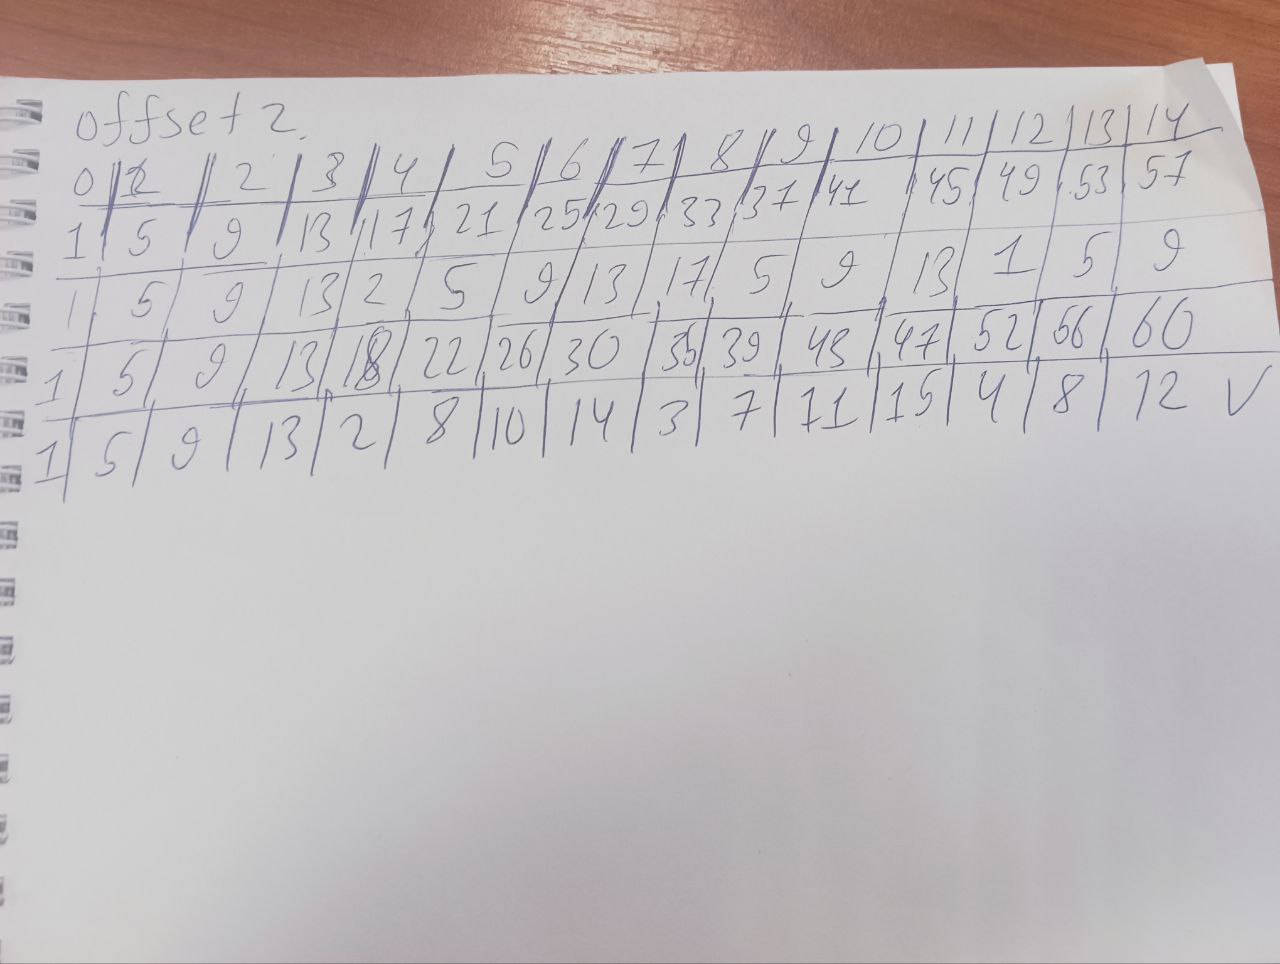 offset 2.
0 1 2 3 4 5 6 7 8 9 10 11 12 13 14
1 5 9 13 17 21 25 29 33 37 41 45 49 53 57
1 5 9 13 2 5 9 13 17 5 9 13 1 5 9
1 5 9 13 18 22 26 30 35 39 43 47 52 56 60
1 5 9 13 2 8 10 14 3 7 11 15 4 8 12 V